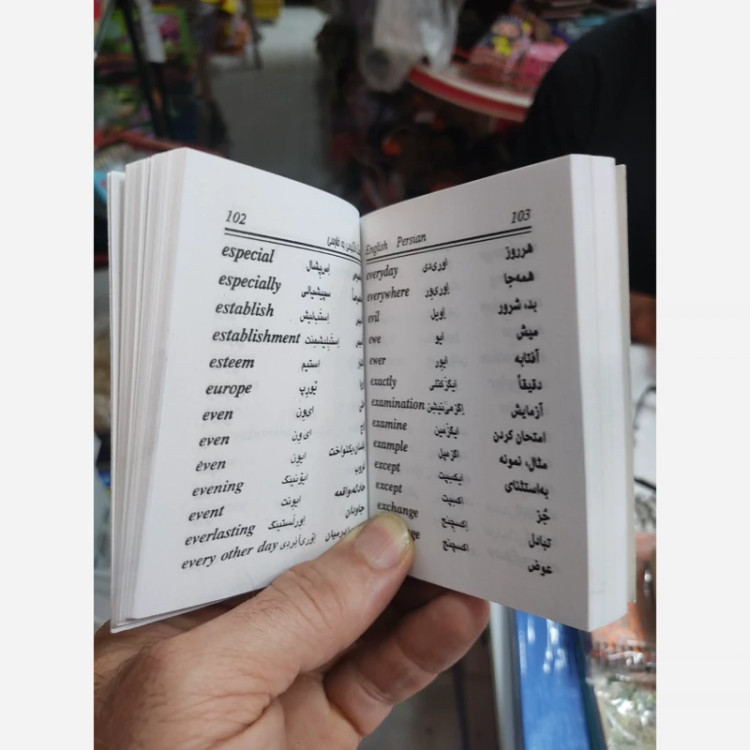 102
especial اِسپشال
especially اِسپشیالی
establish اِستَبلیش
establishment اِستَبلیشمِنت
esteem اِستیم
europe یُورُپ
even ایوِن
even ای وِن
even ایوِن
evening ایوْنینگ
event ایونت
everlasting اِوِرلَستینگ جاودان
every other day
English Persian 103
everyday اِوری‌دِی هرروز
everywhere اِوری‌وِر همه‌جا
evil اِویل بد، شرور
ewe ایو میش
ewer ایور آفتابه
exactly ایگزَکتلی دقیقاً
examination اِگزَمی‌نِیشِن آزمایش
examine ایگزَمین امتحان کردن
example اگزمپل مثال، نمونه
except ایکسپت به‌استثنای
except اکسپت جُز
exchange اکسچنج تبادل
اکسچنج عوض